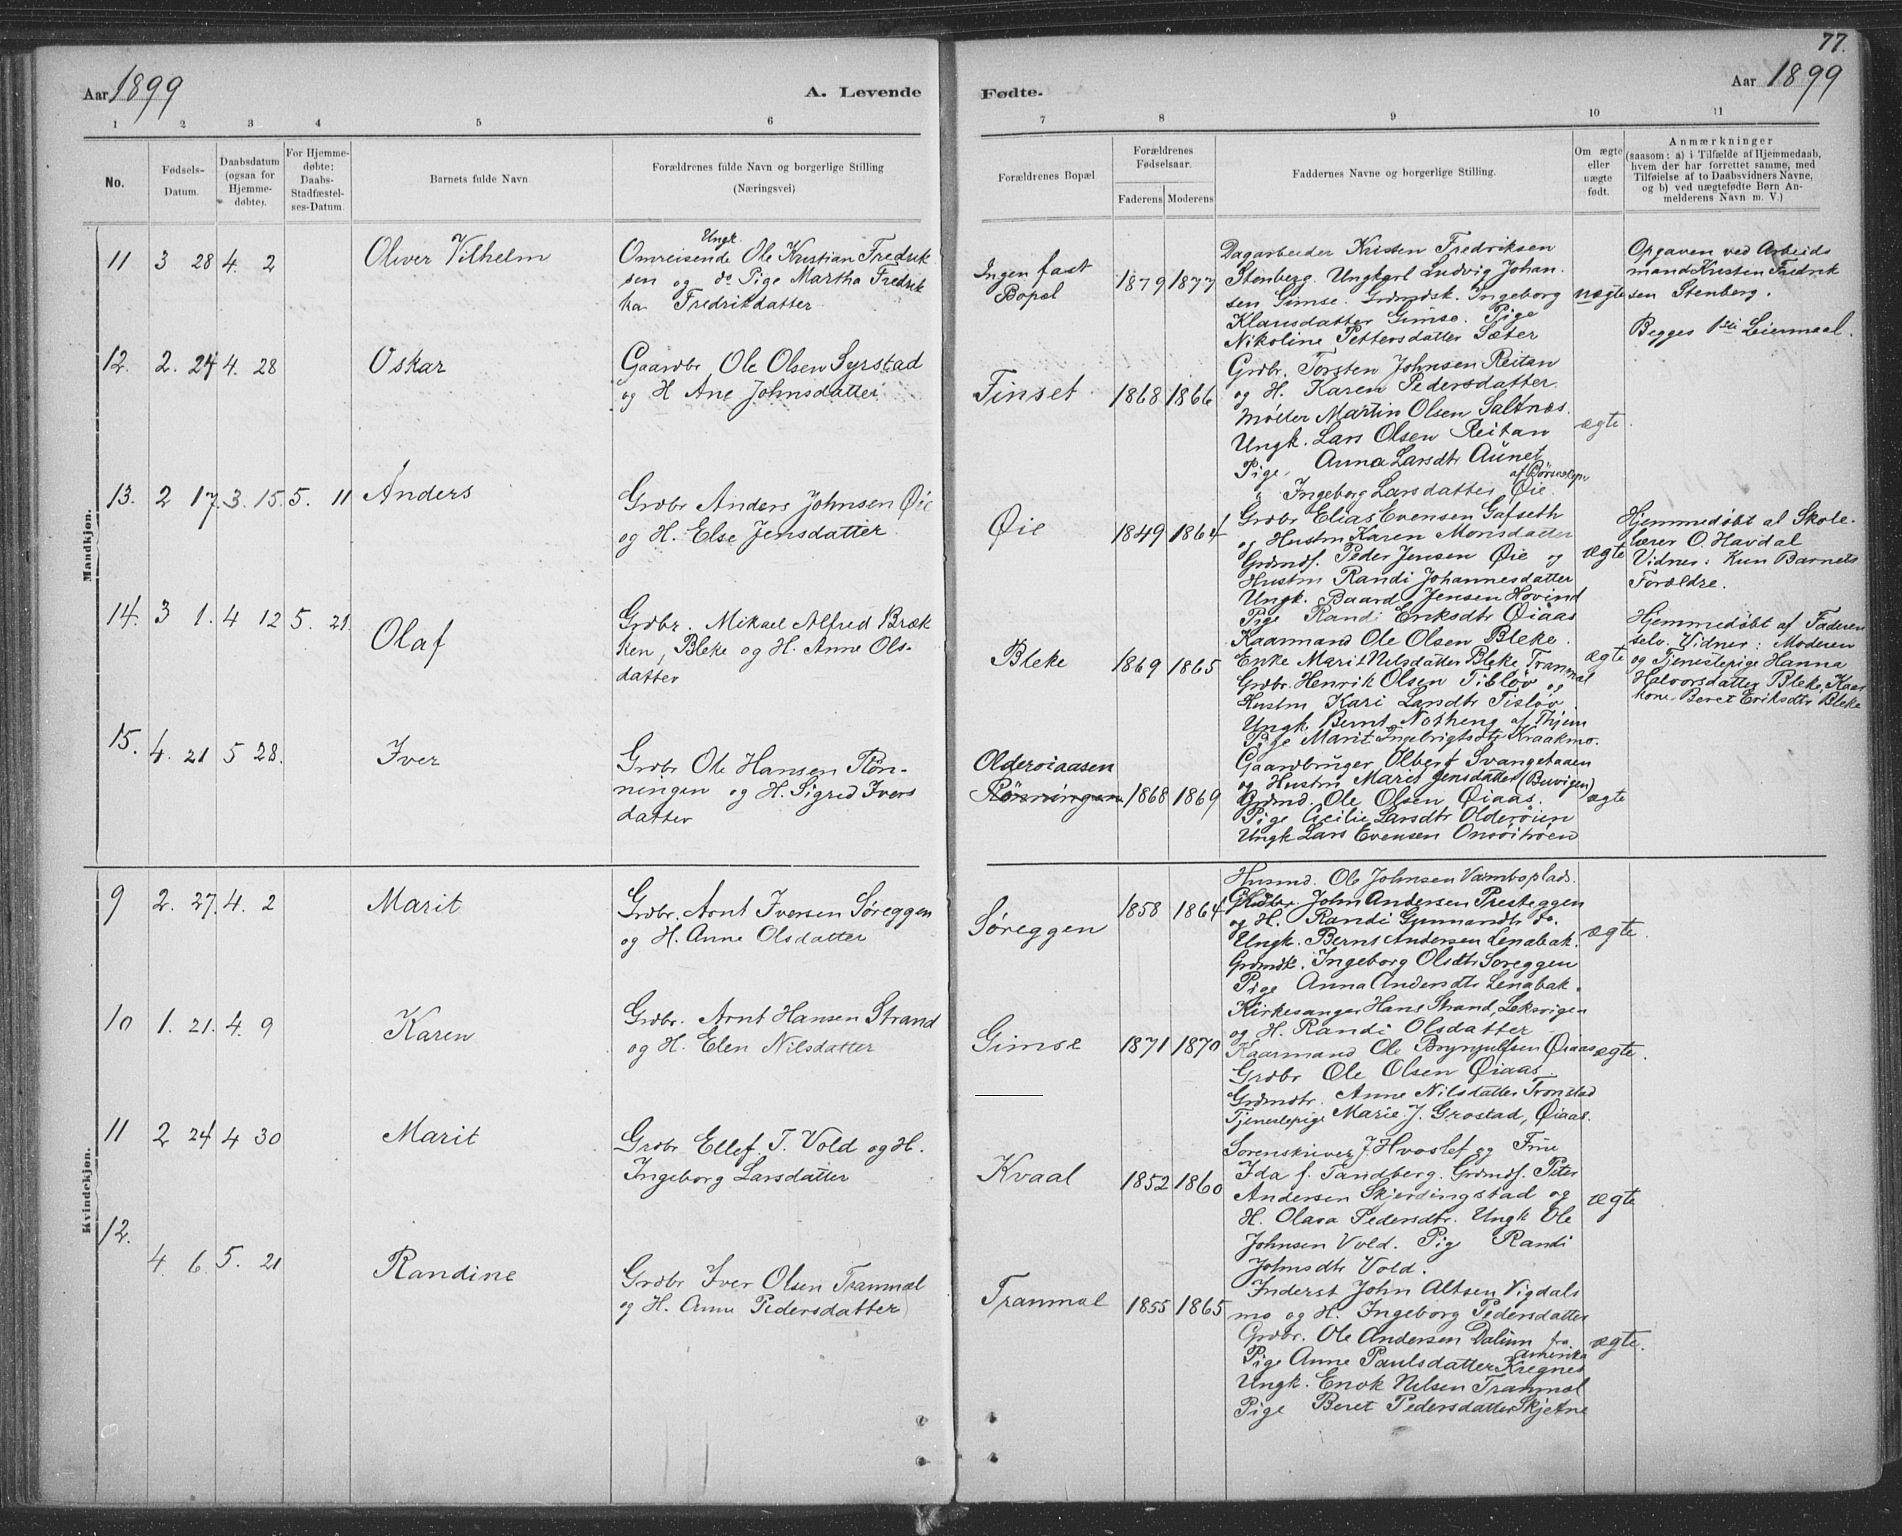 77.
Aar 1899
A. Levende
Fødte.
Aar 1899
1 2 3 4 5 6 7 8 9 10 11
No.
Fødsels-
Datum.
Daabsdatum
(ogsaa for
Hjemme-
døbte).
For Hjemme-
døbte:
Daabs-
Stadfæstel-
ses-Datum.
Barnets fulde Navn
Forældrenes fulde Navn og borgerlige Stilling
(Næringsvei)
Forældrenes Bopæl
Forældrenes
Fødselsaar.
Faderens Moderens
Faddernes Navne og borgerlige Stilling.
Om ægte
eller
uægte
født.
Anmærkninger
(saasom: a) i Tilfælde af Hjemmedaab,
hvem der har forrettet samme, med
Tilføielse af to Daabsvidners Navne,
og b) ved uægtefødte Børn An-
melderens Navn m. V.)
Mandkjøn.
11 3 28 4. 2
Oliver Vilhelm
Ungk.
Omreisende Ole Kristian Fredrik
sen og do Pige Martha Fredrik
ka Fredrikdatter
Ingen fast
Bopæl
1879 1877
Dagarbeider Kristen Fredriksen
Stenberg. Ungkarl Ludvig Johan-
sen Gimse. Grdmdsk. Ingeborg
Klausdatter Gimse. Pige
Nikoline Pettersdatter Sæter
uægte
Opgaven ved Arbeids
mand Kristen Fredrik
sen Stenberg.
Begges 1ste Leiermaal.
12. 2. 24 4. 28
Oskar
Gaardbr Ole Olsen Syrstad
og H Ane Johnsdatter
Finset
1868 1866
Grdbr. Torsten Johnsen Reitan
og H. Karen Pedersdatter.
Møller Martin Olsen Saltnæs.
Ungk. Lars Olsen Reitan
Pige, Anna Larsdtr Aunet
af Børseskogn
" Ingeborg Larsdatter Øie
ægte.
13. 2 17. 3. 15. 5. 11
Anders
Grdbr Anders Johnsen Øie
og H. Else Jensdatter
Øie
1849 1864
Grdbr Elias Evensen Gafseth
og Hustru Karen Monsdatter
Grdmdf. Peder Jensen Øie og
Hustru Randi Johannesdatter
Ungk. Baard Jensen Hovind
Pige Randi Eriksdtr Øiaas
ægte
Hjemmedøbt af Skole-
lærer O. Havdal
Vidner: Kun Barnets
Forældre.
14. 3 1. 4 12 5. 21.
Olaf
Grdbr. Mikael Alfred Bræk
ken, Bleke og H. Anne Ols-
datter
Bleke
1869 1865
Kaarmand Ole Olsen Bleke.
Enke Marit Nilsdatter Bleke Tranmæl
Grdbr. Henrik Olsen Tisløv og
Hustru Kari Larsdtr Tisløv.
Ungk. Bernt Notheng af Thjem
Pige Marit Ingebrigtsdtr Kraakmo.
ægte
Hjemmedøbt af Faderen
selv. Vidner: Moderen
og Tjenestepige Hanna
Halvorsdatter Bleke, Kaar
kone Beret Eriksdtr Bleke
15. 4. 21 5 28.
Iver
Grdbr Ole Hansen Røn-
ningen og H. Sigrid Ivers
datter
Olderøiaasen
Rønningen
1868 1869
Gaardbruger Olbert Svangetaaen
og Hustru Marit Jensdatter (Buvigen)
Grdmd. Ole Olsen Øiaas.
Pige Cicilie Larsdtr Olderøien
Ungk Lars Evensen Onsøitrøen
ægte
Kvindekjøn.
9 2. 27. 4. 2
Marit
Grdbr. Arnt Iversen Søreggen
og H. Anne Olsdatter
Søreggen
1858 1864
Husmd. Ole Johnsen Vamboplads.
Grdbr. John Andersen Presteggen
og H. Randi Gunnarsdtr do.
Ungk. Bernt Andersen Lenabak.
Grdmdk. Ingeborg Olsdtr Søreggen
Pige Anna Andersdtr Lenabak.
ægte.
10 1. 21. 4. 9
Karen
Grdbr. Arnt Hansen Strand
og H. Elen Nilsdatter
Gimse
1871 1870
Kirkesanger Hans Strand, Leksvigen
og H. Randi Olsdatter
Kaarmand Ole Brynjulfsen Øiaas
Grdbr Ole Olsen Øiaas
Grdmdtr. Anne Nilsdatter Tronstad
Tjenestepige Marie J. Grostad, Øiaas.
ægte.
11 2 24 4 30
Marit
Grdbr Ellef T. Vold og H.
Ingeborg Larsdatter
Kvaal
1852 1860
Sorenskriver J Hvoslef og Frue
Ida f. Tandberg. Grdmdf. Peter
Andersen Skjerdingstad og
H. Olava Pedersdtr. Ungk Ole
Johnsen Vold. Pige Randi
Johnsdtr Vold.
ægte
12. 4. 6. 5. 21
Randine
Grdbr Iver Olsen Tranmæl
og H. Anne Pedersdatter
Tranmæl
1855 1865
Inderst John Altsen Vigdals
mo og H. Ingeborg Pedersdatter
Grdbr. Ole Andersen Dalum fra
Amerika
Pige Anne Paulsdatter Kregnes
Ungk. Enok Nilsen Tranmæl
Pige Beret Pedersdatter Skjetne
ægte.